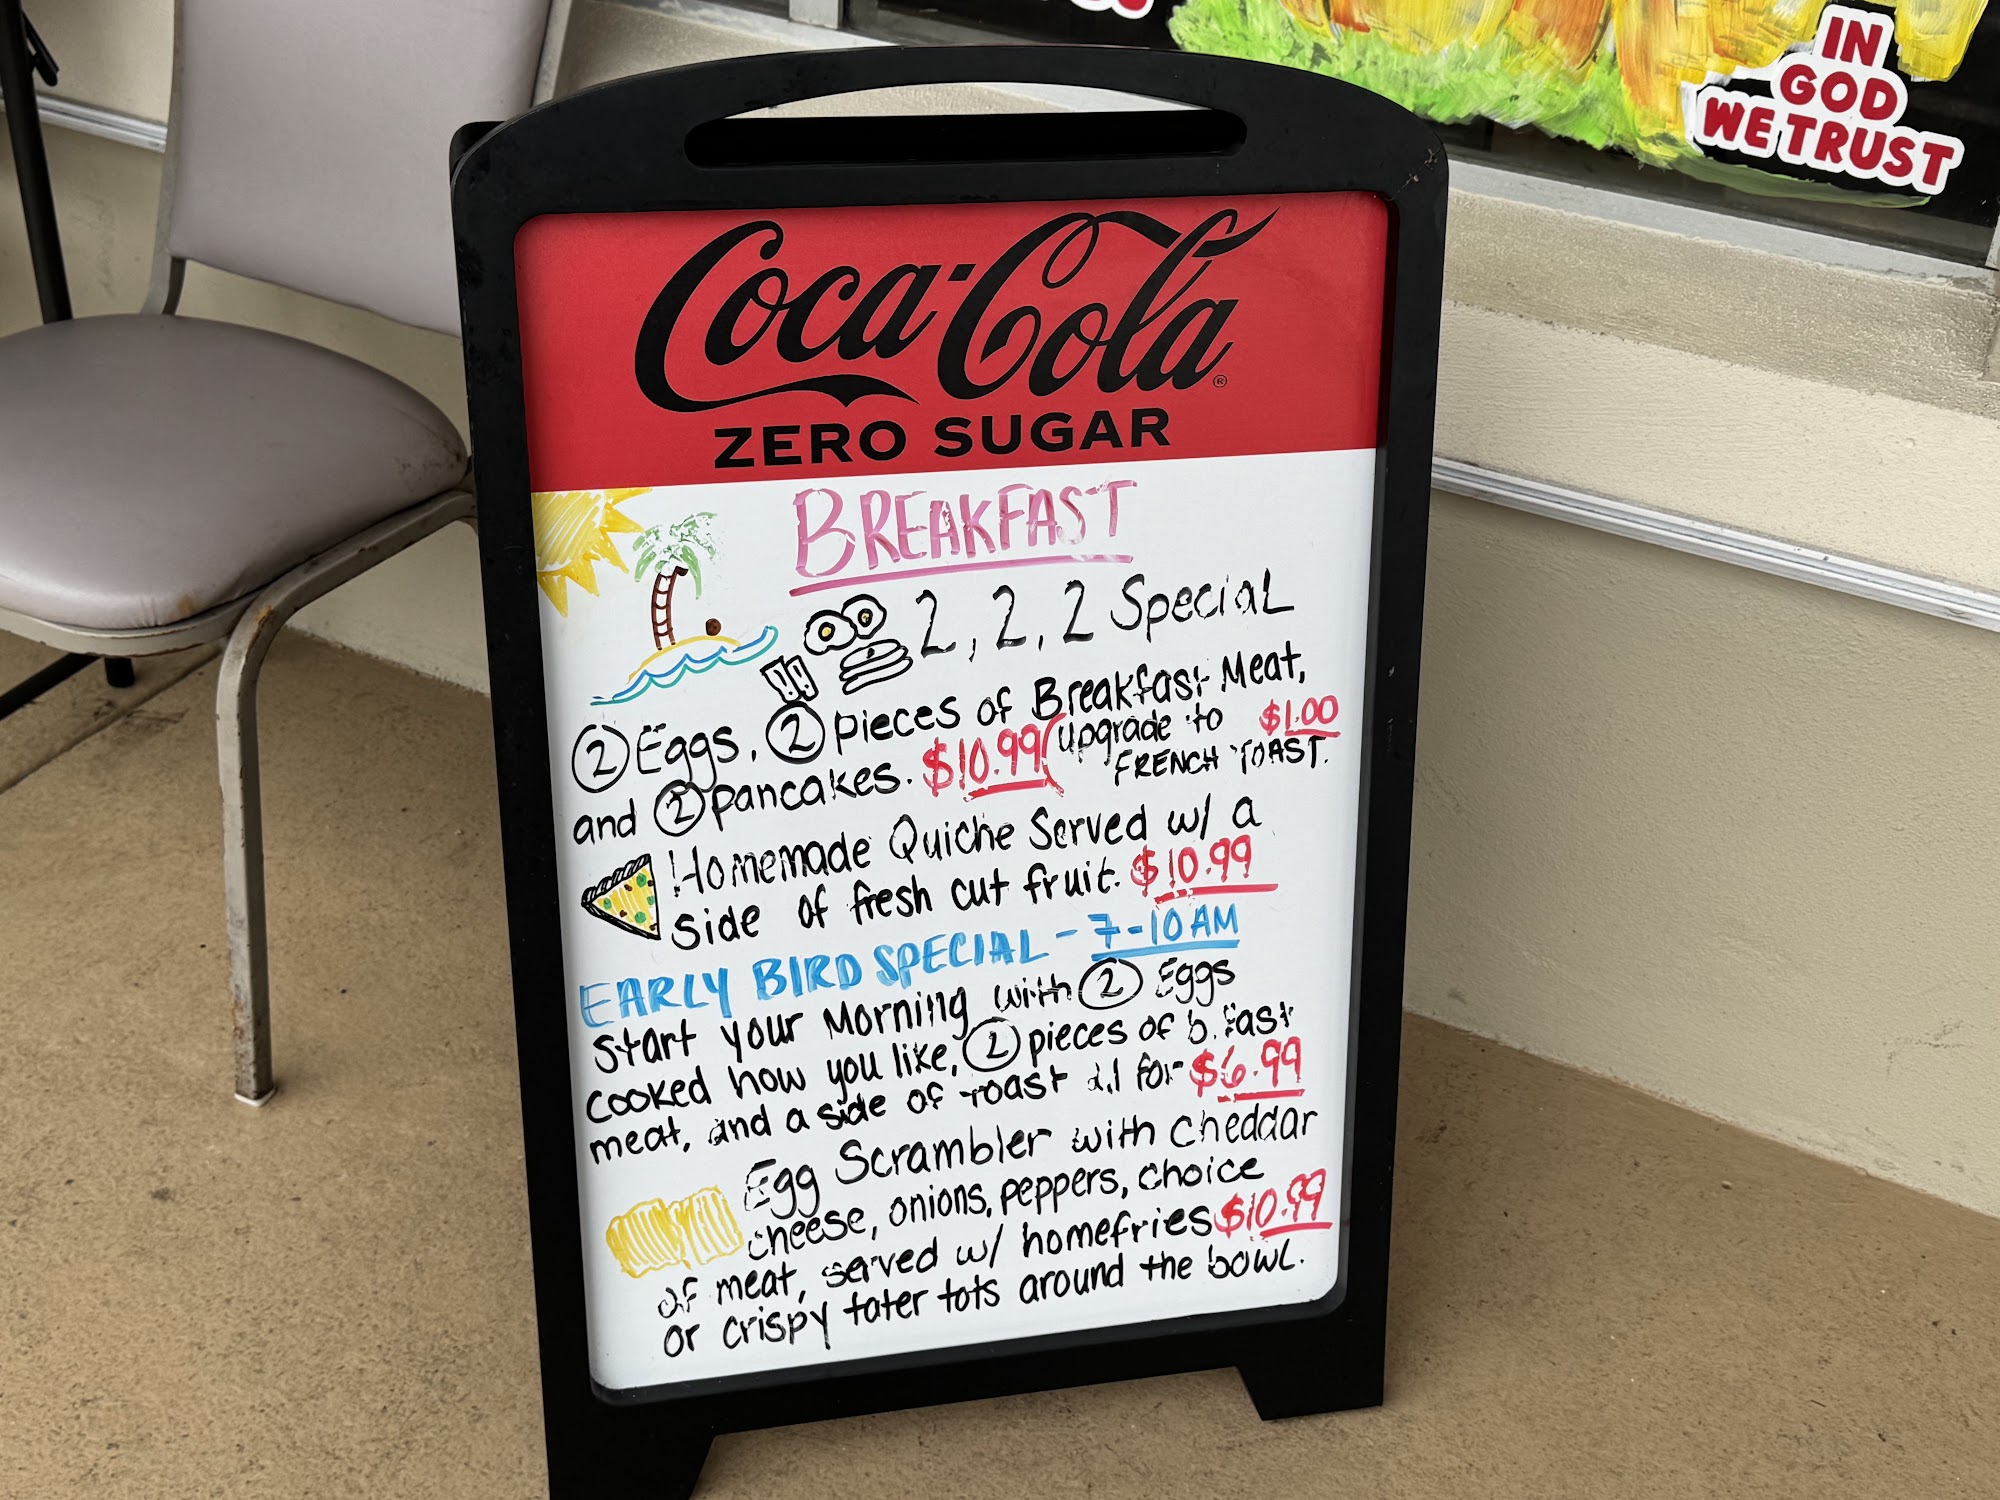 IN
GOD
WE TRUST
Coca-Cola®
ZERO SUGAR
BREAKFAST
2, 2, 2 Special
2 Eggs, 2 pieces of Breakfast Meat,
and 2 pancakes. $10.99 (upgrade to $1.00
FRENCH TOAST.
Homemade Quiche Served w/ a
side of fresh cut fruit. $10.99
EARLY BIRD SPECIAL - 7-10 AM
Start your Morning with 2 Eggs
cooked how you like, 2 pieces of b.fast
meat, and a side of toast all for $6.99
Egg Scrambler with cheddar
cheese, onions, peppers, choice
of meat, served w/ homefries $10.99
or crispy tater tots around the bowl.